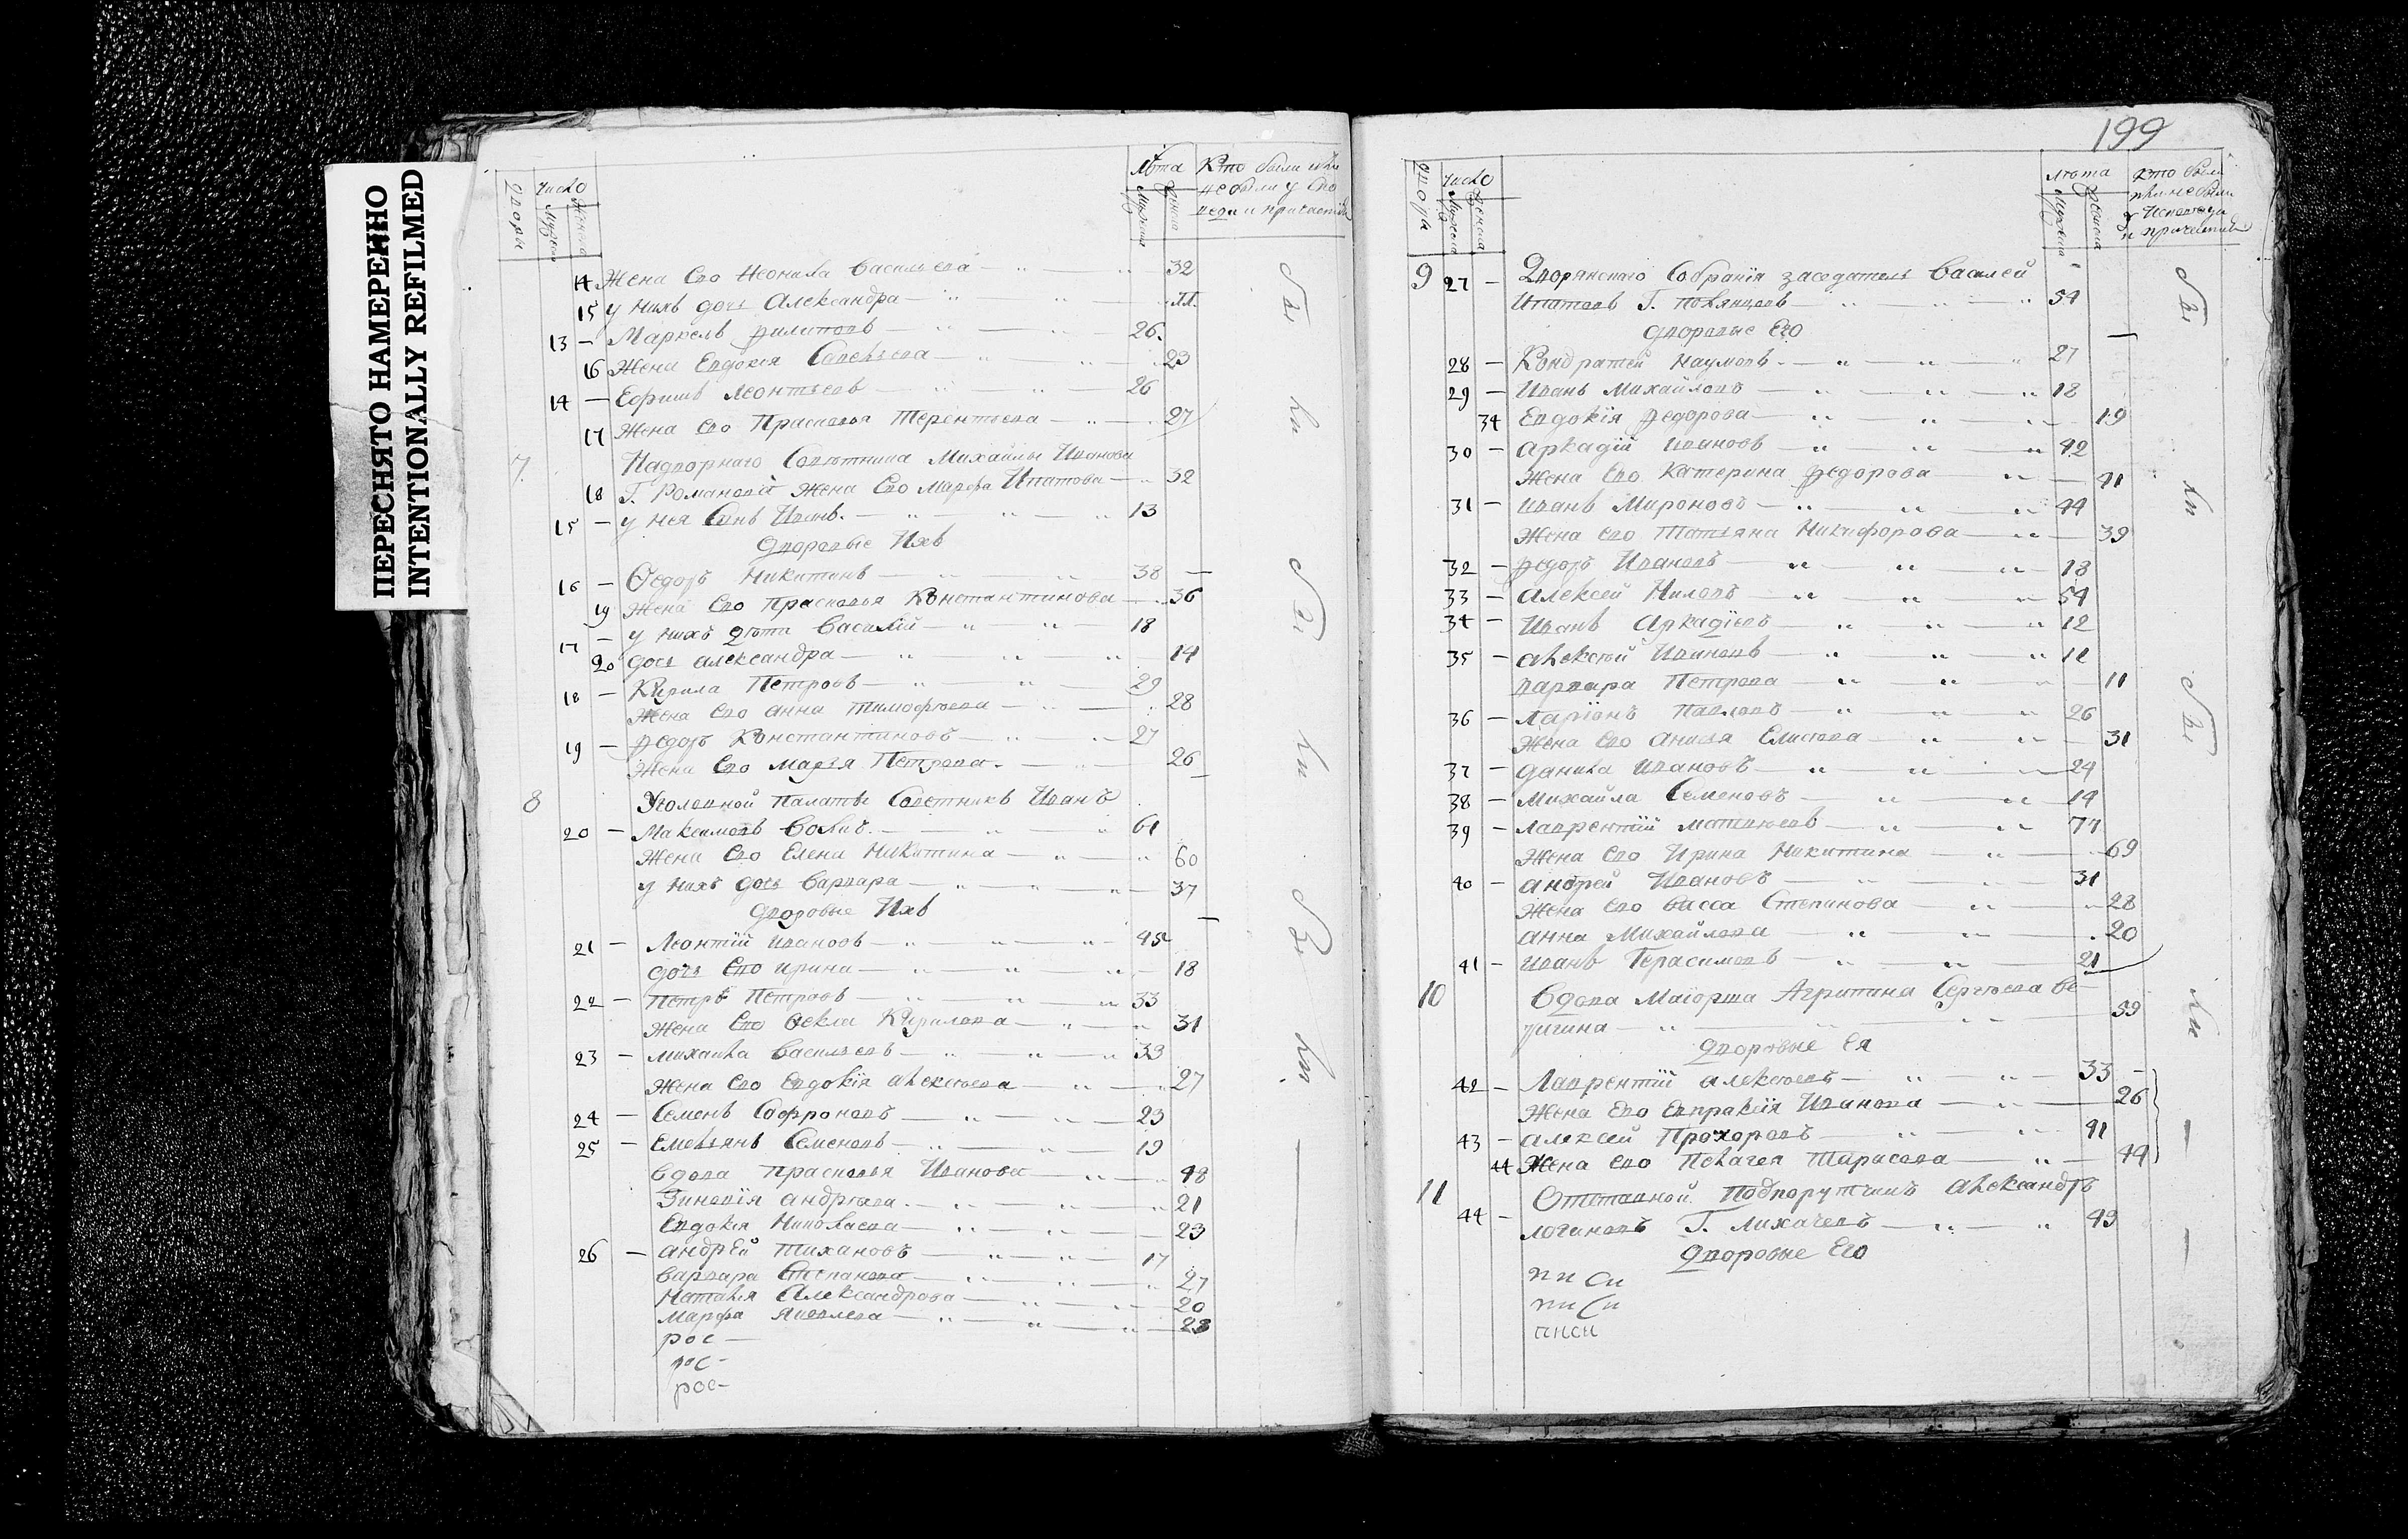 ПЕРЕСНЯТО НАМЕРЕННО
INTENTIONALLY REFILMED
Двора Число Мужеска Женска Лѣта Мужеска Женска Кто были или
не были у Испо
веди и причастія
14 Жена Ево Неонила Васильева 32
15 у нихъ дочь Александра
13 Маркелъ Филиповъ 26
16 Жена Евдокія Савельева 23
14 Ефимъ Леонтьевъ 26
17 Жена Ево Прасковья Терентьева 27
7 Надворнаго Совѣтника Михайлы Иванова
18 Г. Романова Жена Ево Марфа Ипатова 32
15 у нея Сынъ Иванъ 13
Дворовые Ихъ
16 Ѳедоръ Никитинъ 38
19 Жена Ево Прасковья Константинова 36
17 у нихъ дѣти Василій 18
20 дочь Александра 14
18 Кирила Петровъ 29
Жена Ево Анна Тимофѣева 28
19 Федоръ Константиновъ 27
Жена Ево Марья Петрова 26
8 Уголовной Палаты Советникъ Иванъ
20 Максимовъ 61
Жена Ево Елена Никитина 60
у нихъ дочь Варвара 37
Дворовые Ихъ
21 Леонтій Ивановъ 45
дочь Ево Ирина 18
22 Петръ Петровъ 33
Жена Ево Ѳекла Кирилова 31
23 Михаила Васильевъ 33
Жена Ево Евдокія Алексѣева 27
24 Семенъ Софроновъ 23
25 Емельянъ Семеновъ 19
Вдова Прасковья Иванова 48
Зиновія Андрѣева 21
Евдокія Николаева 23
26 Андрей Тихановъ 17
Варвара Степанова 27
Наталья Александрова 20
Марфа Яковлева 23
рос
рос
рос
199
Двора Число Мужеска Женска лѣта Мужеска Женска кто были
или не были
у Исповеди
и причастія
9 27 Дворянскаго Собранія заседатель Василей
Ипатовъ Г. 54
Дворовые Ево
28 Кондратей Наумовъ 27
29 Иванъ Михайловъ 18
34 Евдокія Федорова 19
30 Аркадій Ивановъ 42
Жена Ево Катерина Федорова 41
31 Иванъ Мироновъ 44
Жена Ево Татьяна Никифорова 39
32 Федоръ Ивановъ 18
33 Алексей Ниловъ 54
34 Иванъ Аркадіевъ 12
35 Алексѣй Ивановъ 11
Варвара Петрова 11
36 Ларіонъ Павловъ 26
Жена Ево Анисья Елисеева 31
37 Данила Ивановъ 24
38 Михайла Семеновъ 14
39 Лаврентій Матвѣевъ 74
Жена Ево Ирина Никитина 69
40 Андрей Ивановъ 31
Жена Ево Васса Степанова 28
Анна Михайлова 20
41 Иванъ Герасимовъ 21
10 Вдова Маіорша Агрипина Сергѣева Ве
ригина 59
Дворовые Ея
42 Лаврентій Алексѣевъ 33
Жена Ево Евпраксія Иванова 26
43 Алексей Прохоровъ 41
44 Жена Ево Пелагея Тарасова 44
11 Отставной Подпорутчикъ Александръ
44 Логиновъ Г. Лихачевъ 43
Дворовые Ево